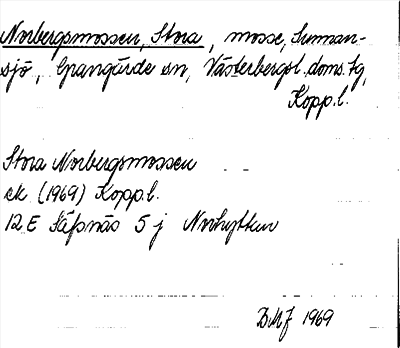 Norbergsmossen, Stora, mosse, Sunnan-
sjö, Grangärde sn, Västerbergsl. doms.tg,
Kopp.l.
Stora Norbergsmossen
ek (1969) Kopp.l.
12 E Säfsnäs 5 j Norhyttan
DMJ 1969